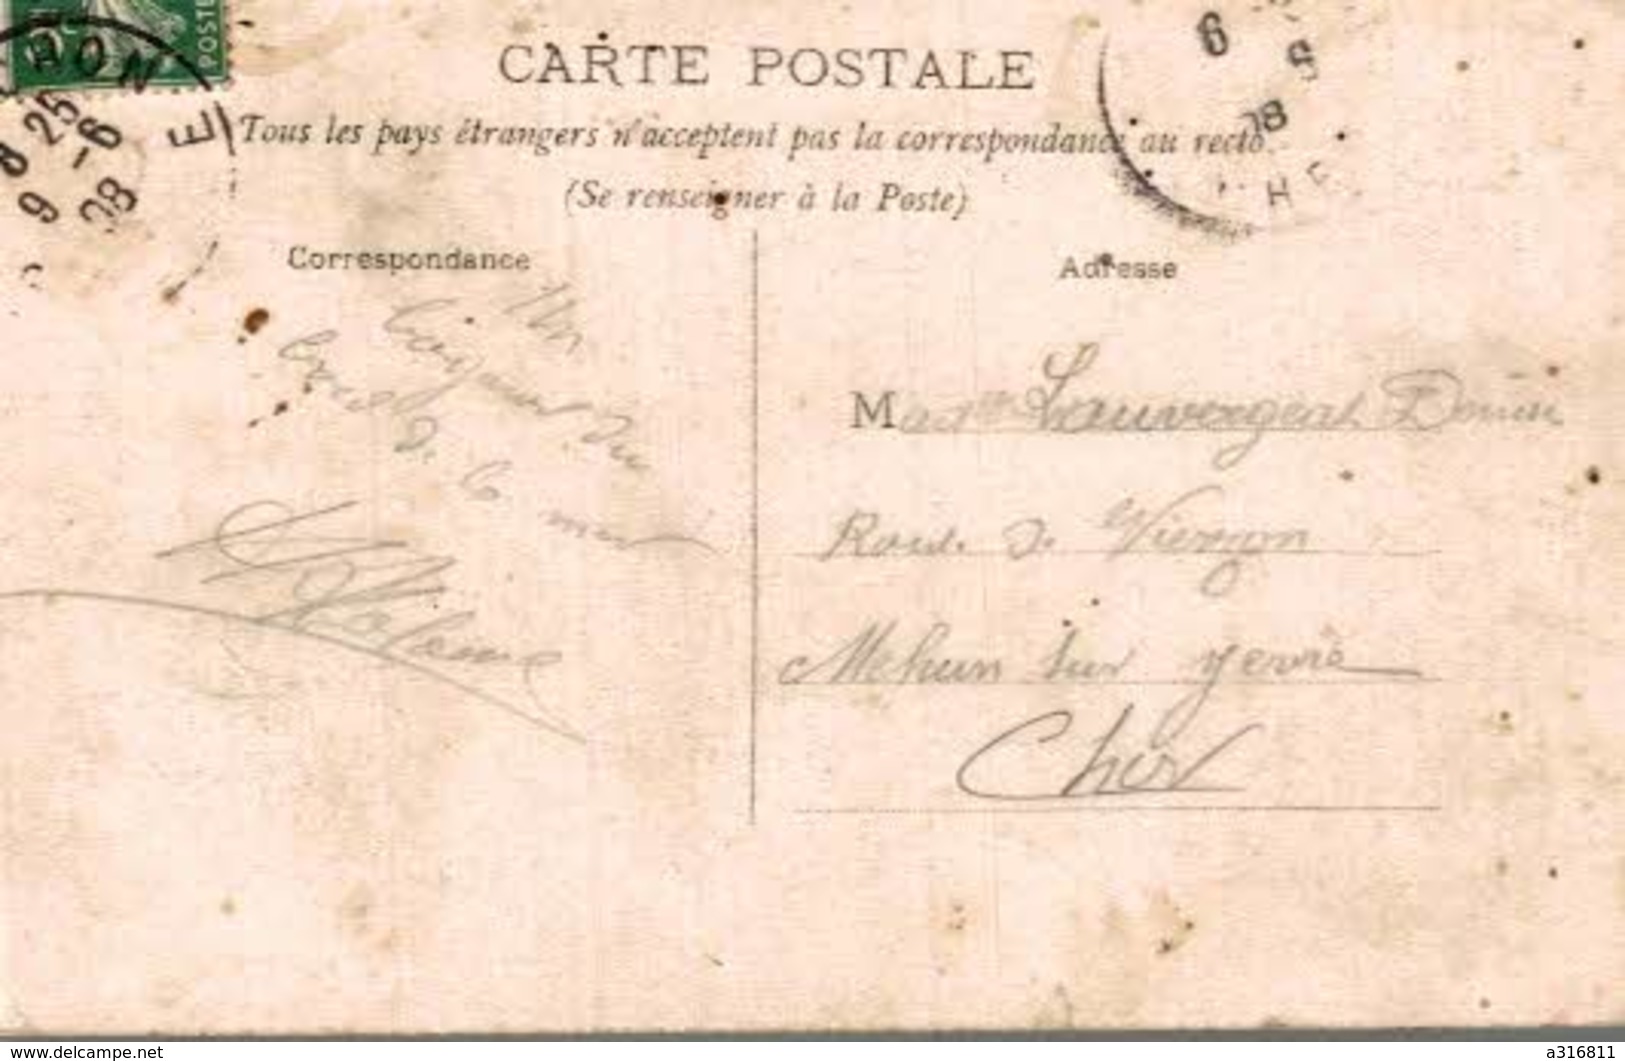 POSTE
HON
E
8 25
9 -6
08
CARTE POSTALE
6
08
HE
Tous les pays étrangers n'acceptent pas la correspondance au recto.
(Se renseigner à la Poste)
Correspondance
Un
du
bord de la mer
Adresse
Mad Lauvergeat
Route de Vierzon
Mehun sur yevre
Cher
www.delcampe.net
a316811